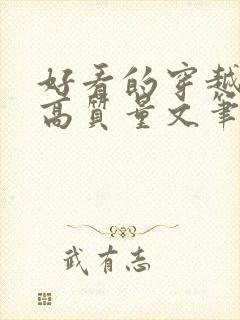 好看的穿越
高质量文筆
武有志